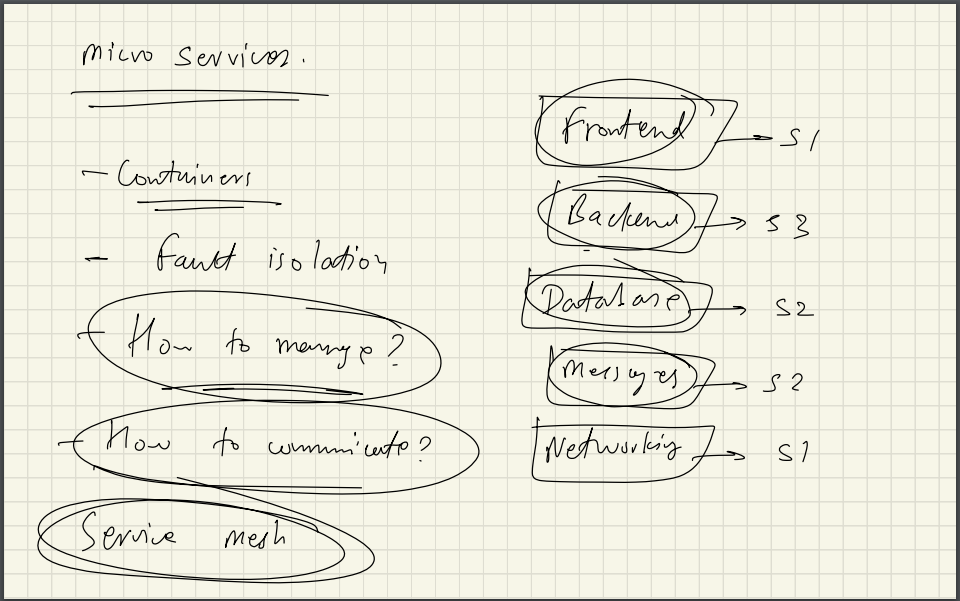 Micro Services.
- Containers
- Fault isolation
- How to manage?
- How to communicate?
Service mesh
Frontend → S1
Backend → S3
Database → S2
Messages → S2
Networking → S1